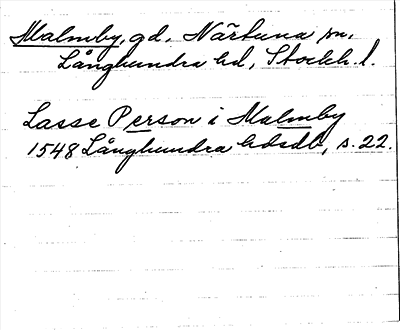 Malmby, gd. Närtuna sn,
Långhundra hd, Stockh. l.
Lasse Person i Malmby
1548 Långhundra hdsdb, s. 22.